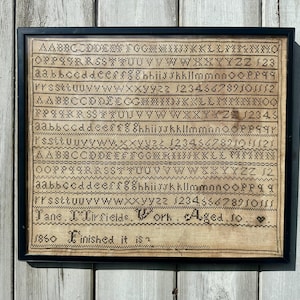 AABBCCDDEEFFGGHHIIJJKKLLMMNN
OOPPQQRRSSTTUUVVWWXXYYZZ 123
aabbccddeeffgghhiijjkkllmmnnooppqq
rrssttuuvvwwxxyyzz 123456789101112
AABBCCDDEEFFGGHHIIJJKKLLMMNN
OOPPQQRRSSTTUUVVWWXXYYZZ 12
aabbccddeeffgghhiijjkkllmmnnooppqq
rrssttuuvvwwxxyyzz 123456789101112
AABBCCDDEEFFGGHHIIJJKKLLMMNN
OOPPQQRRSSTTUUVVWWXXYYZZ 12
aabbccddeeffgghhiijjkkllmmnnooppqq
rrssttuuvvwwxxyyzz 123456789101112
Jane, Work Aged, 10
1860 Finished it is